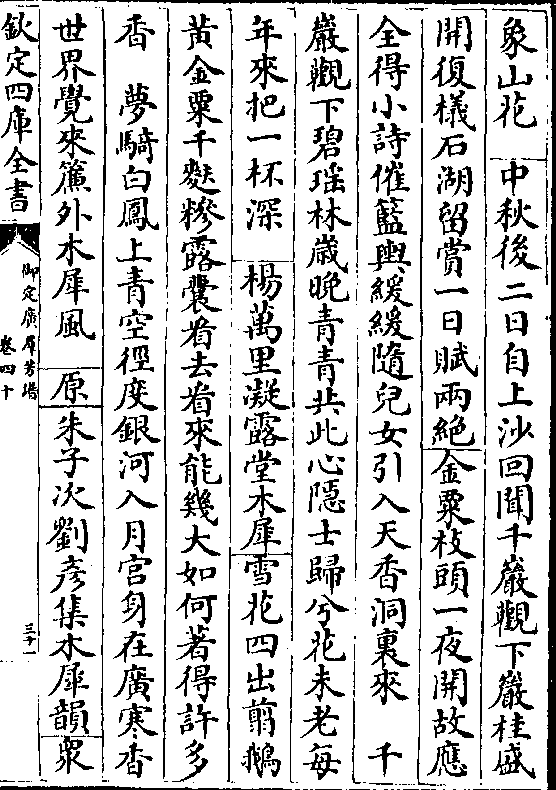 象山花　中秋後二日自上沙回聞千巖觀下巖桂盛
開復檥石湖留賞一日賦兩絶　金粟枝頭一夜開故應
全得小詩催籃輿緩緩隨兒女引入天香洞裏來　千
巖觀下碧瑶林歲晚青青共此心隱士歸兮花未老每
年來把一杯深　楊萬里凝露堂木犀　雪花四出剪鵝
黄金粟千麩糝露囊看去看來能幾大如何著得許多
香　夢騎白鳳上青空徑度銀河入月宫身在廣寒香
世界覺來簾外木犀風　原　朱子次劉彦集木犀韻　衆
欽定四庫全書
御定廣羣芳譜
卷四十
三十一